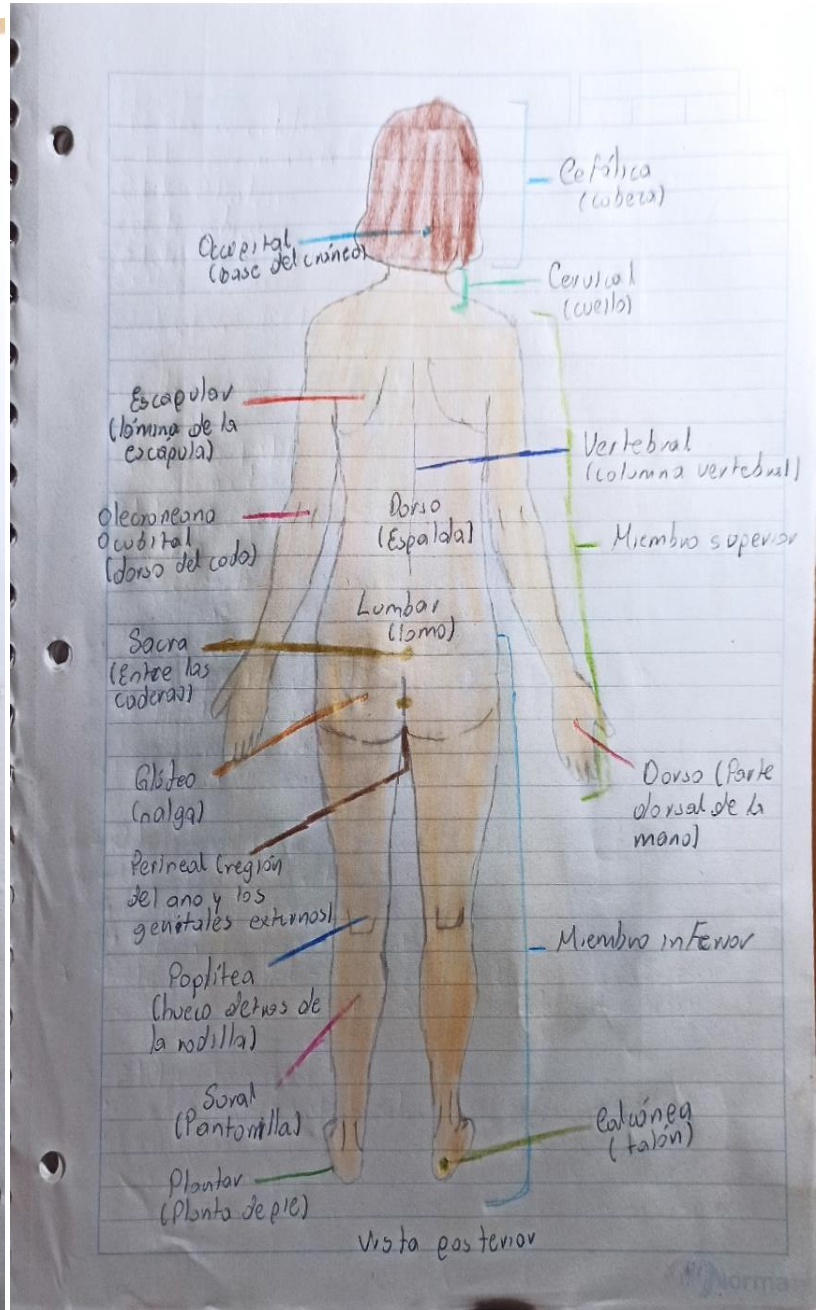 Cefálica
(cabeza)
Occipital
(base del cráneo)
Cervical
(cuello)
Escapular
(lámina de la
escápula)
Vertebral
(columna vertebral)
Olecroneana
O cubital
(dorso del codo)
Dorso
(Espalda)
Miembro superior
Lumbar
(lomo)
Sacra
(Entre las
caderas)
Glúteo
(nalga)
Dorso (Parte
dorsal de la
mano)
Perineal (región
del ano y los
genitales externos)
Miembro inferior
Poplítea
(hueco detras de
la rodilla)
Sural
(Pantorrilla)
Calcánea
(talón)
Plantar
(Planta de pie)
Vista posterior
Norma